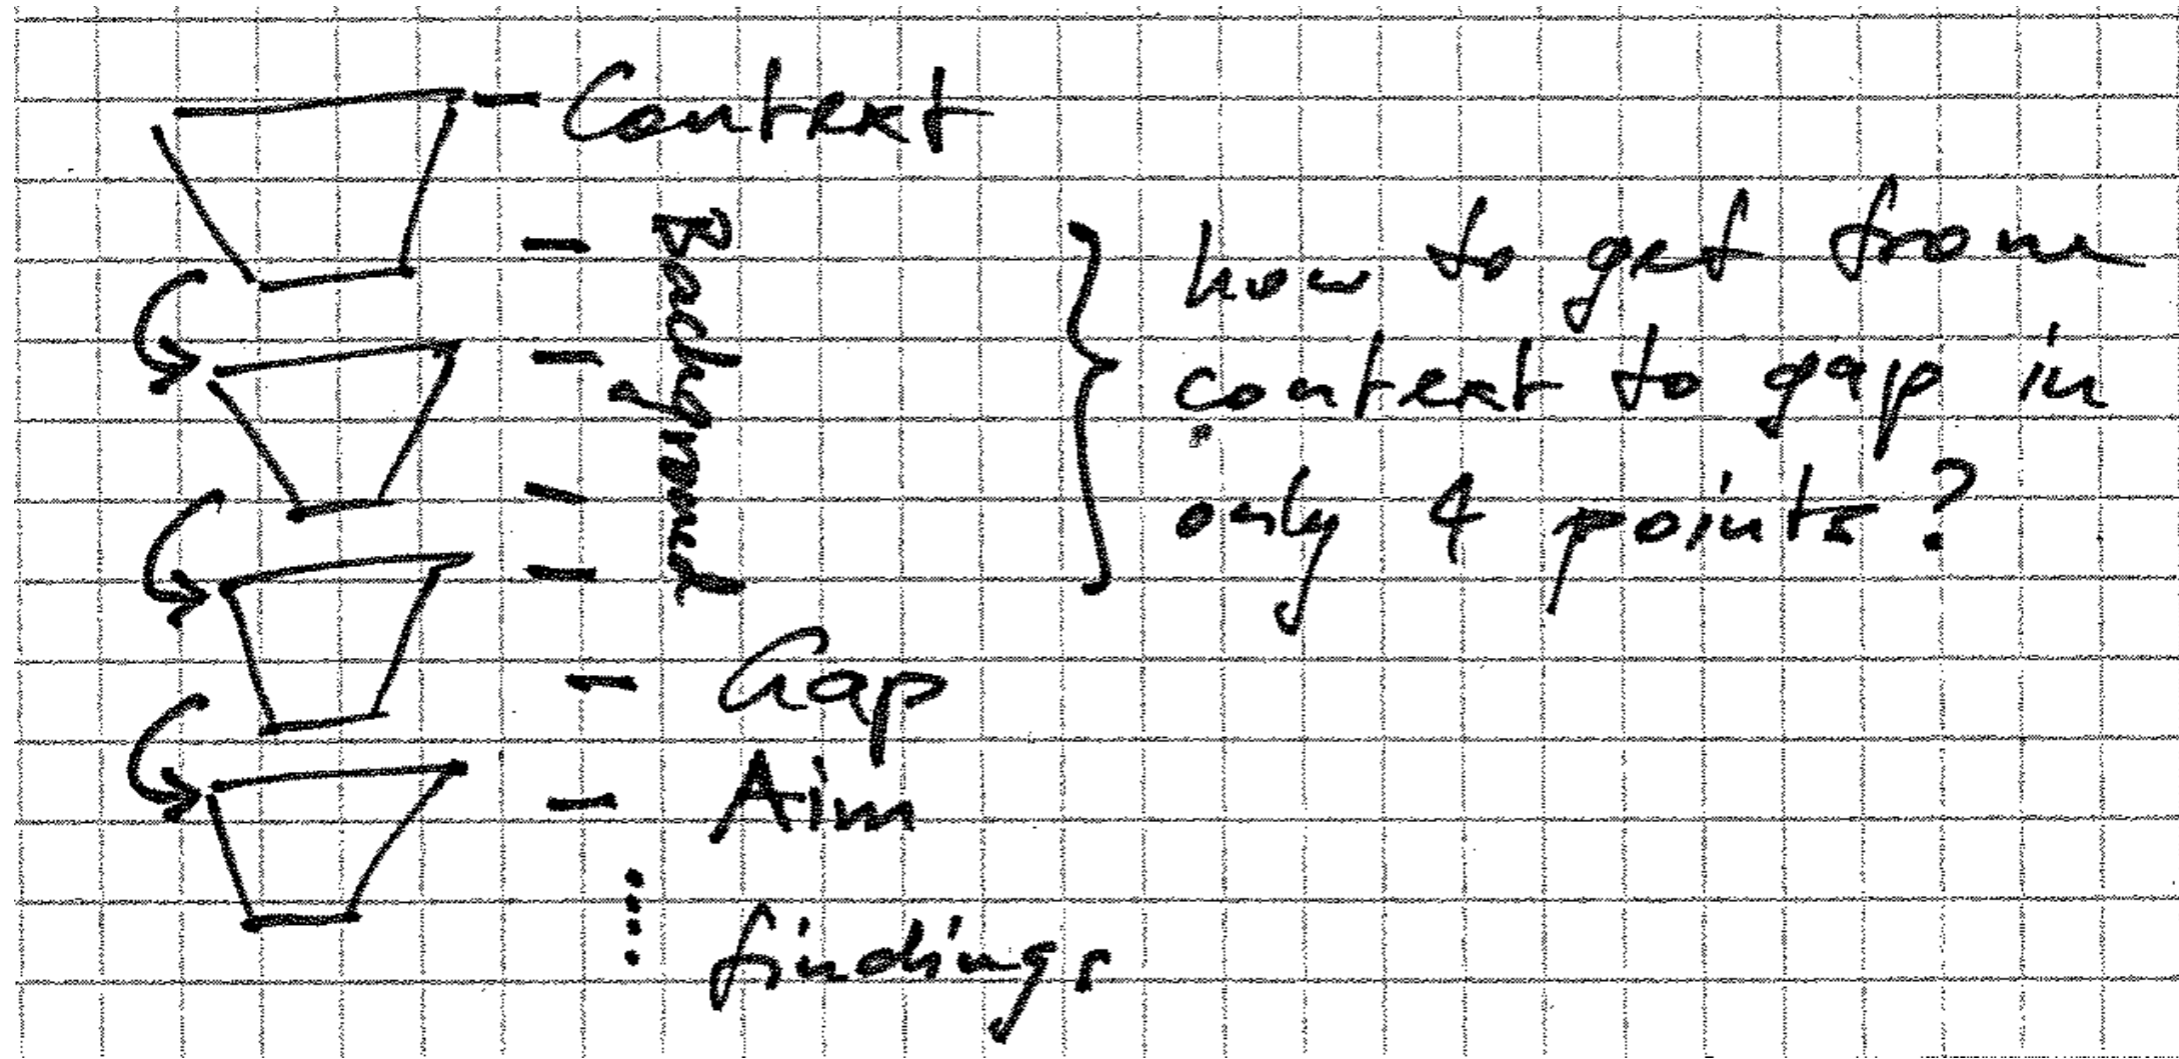 - Context
Background
how to get from
context to gap in
only 4 points?
- Gap
- Aim
findings